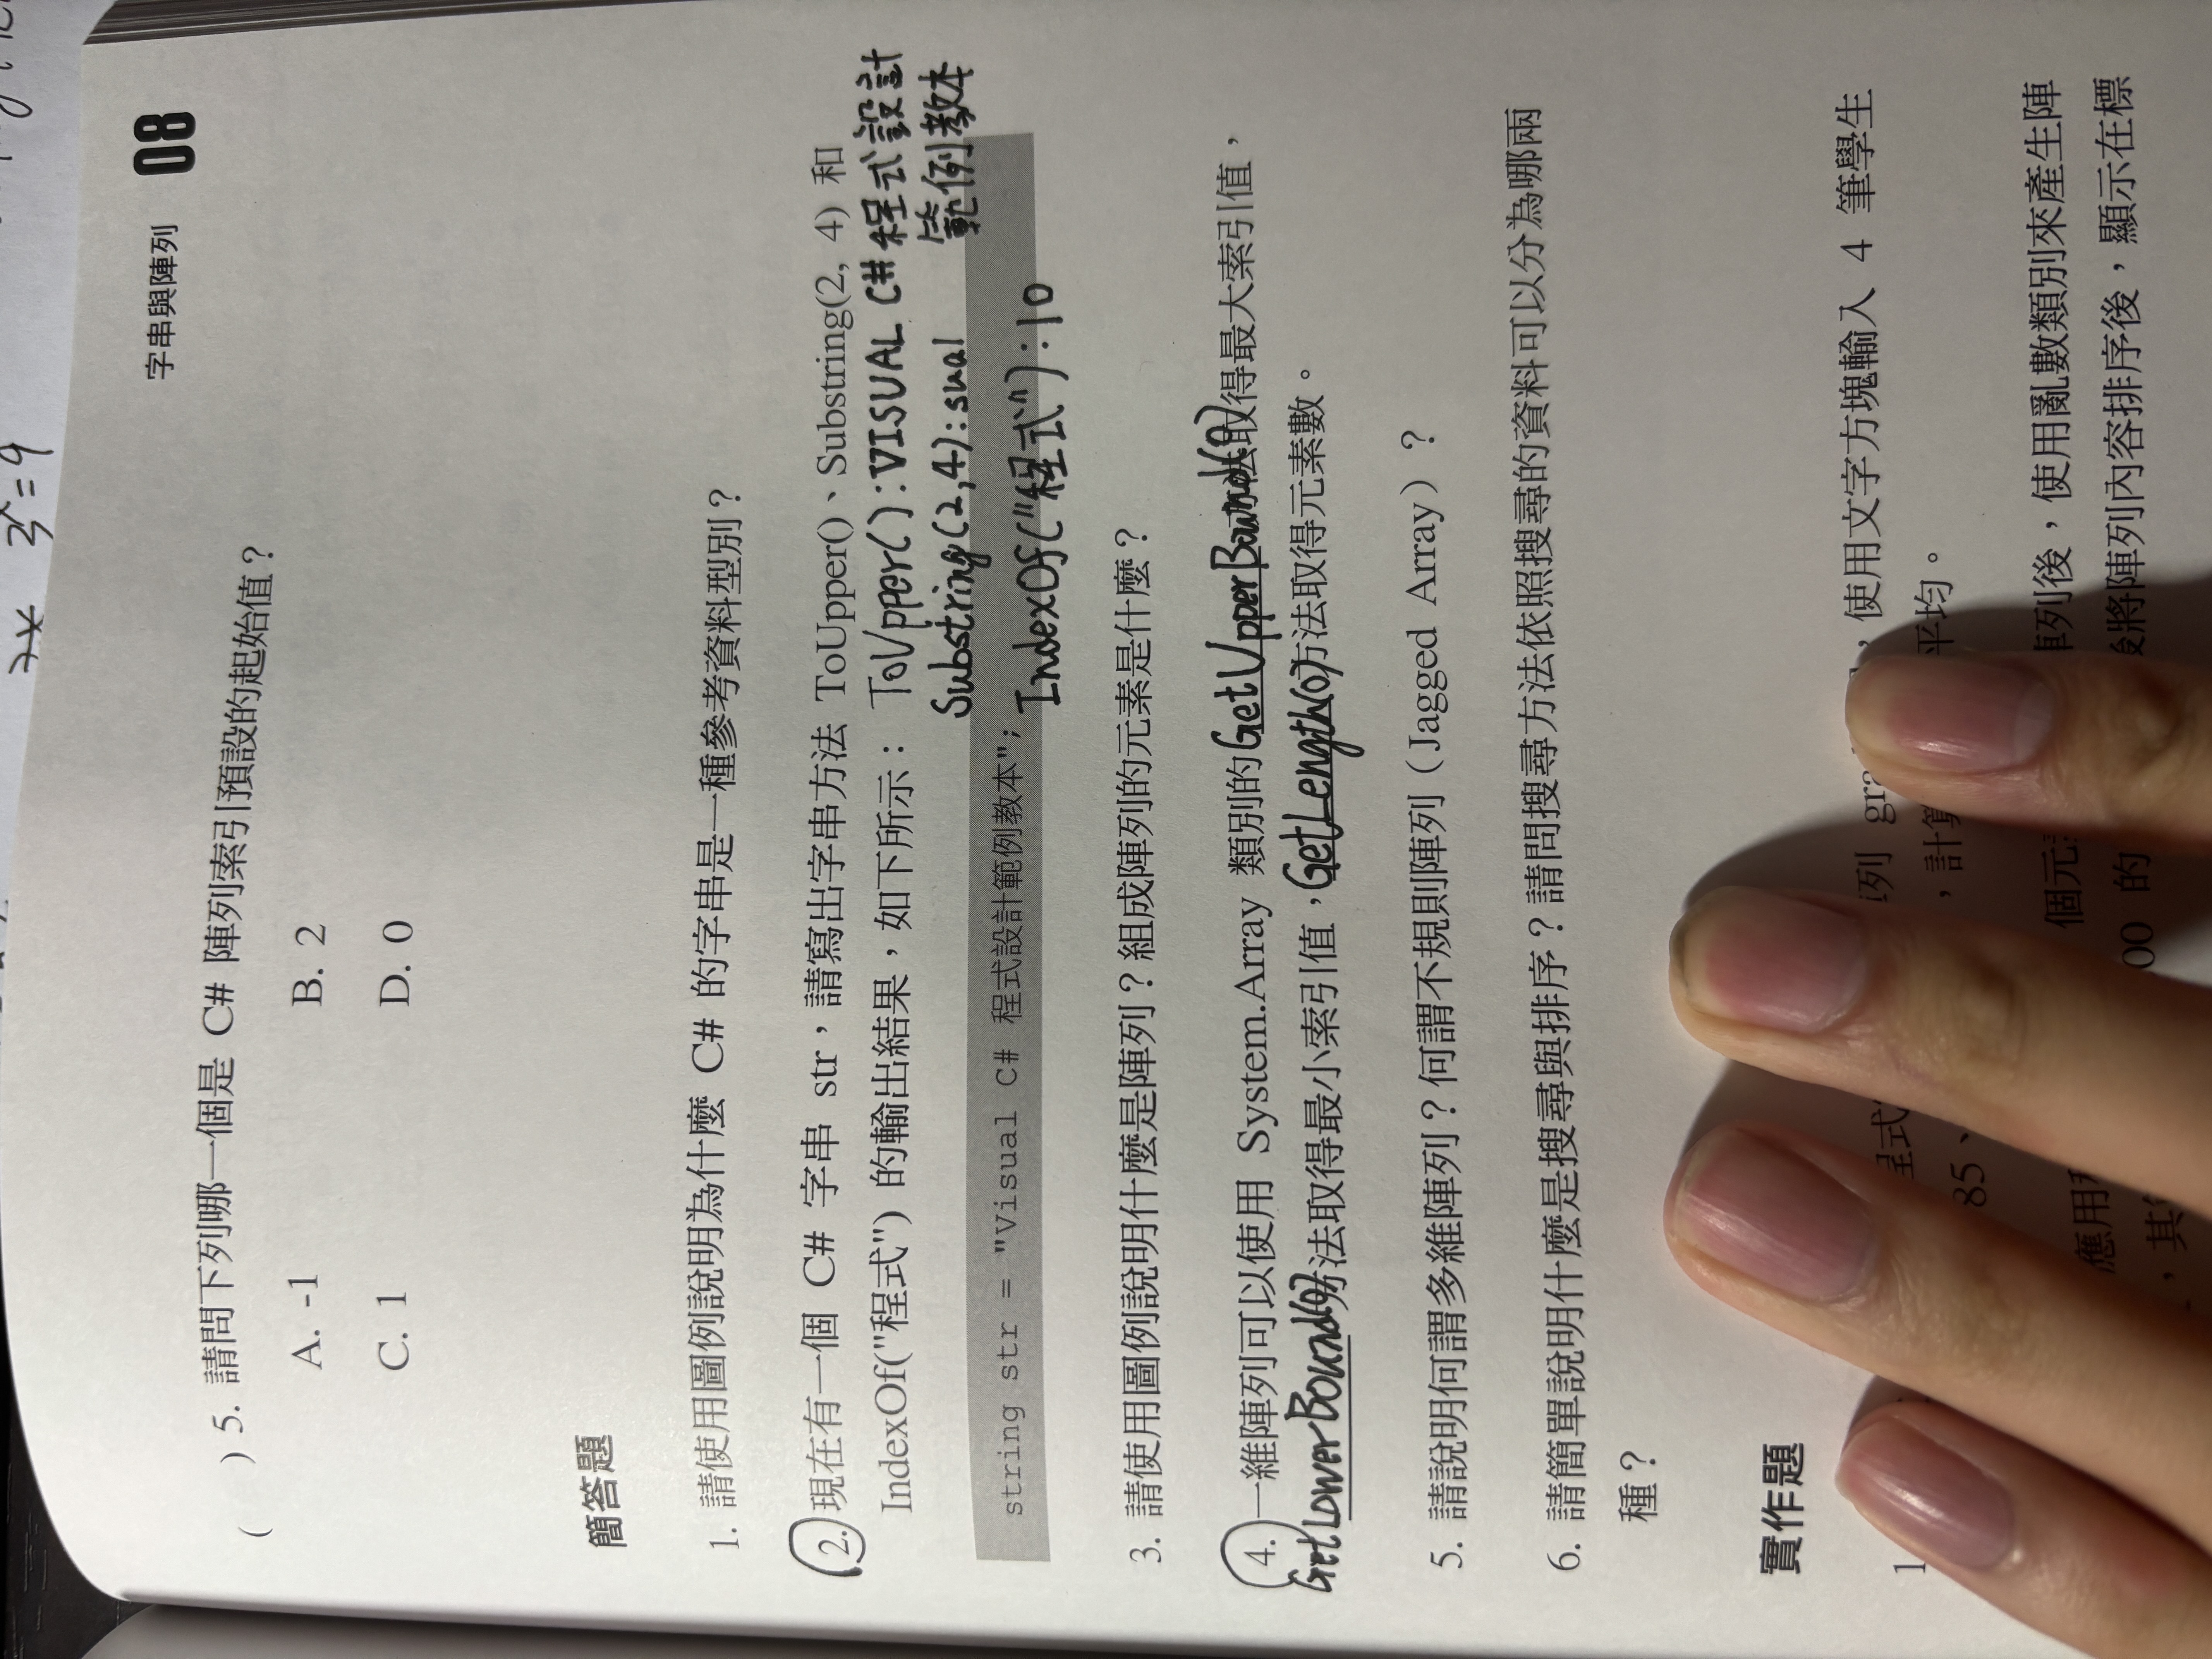 3ˣ=9
字串與陣列 08
( ) 5. 請問下列哪一個是 C# 陣列索引預設的起始值？
A. -1 B. 2
C. 1 D. 0
簡答題
1. 請使用圖例說明為什麼 C# 的字串是一種參考資料型別？
2. 現在有一個 C# 字串 str，請寫出字串方法 ToUpper()、Substring(2, 4) 和
IndexOf("程式") 的輸出結果，如下所示：
ToUpper():VISUAL C# 程式設計
範例教本
Substring(2,4):sual
string str = "Visual C# 程式設計範例教本";
IndexOf("程式"):10
3. 請使用圖例說明什麼是陣列？組成陣列的元素是什麼？
4. 一維陣列可以使用 System.Array 類別的GetUpperBound(0)方法取得最大索引值，
GetLowerBound(0)方法取得最小索引值，GetLength(0)方法取得元素數。
5. 請說明何謂多維陣列？何謂不規則陣列（Jagged Array）？
6. 請簡單說明什麼是搜尋與排序？請問搜尋方法依照搜尋的資料可以分為哪兩
種？
實作題
1 程式 列 ，使用文字方塊輸入 4 筆學生
85、 ，計算 平均。
應用 個元 陣列後，使用亂數類別來產生陣
，其 00 的 後將陣列內容排序後，顯示在標